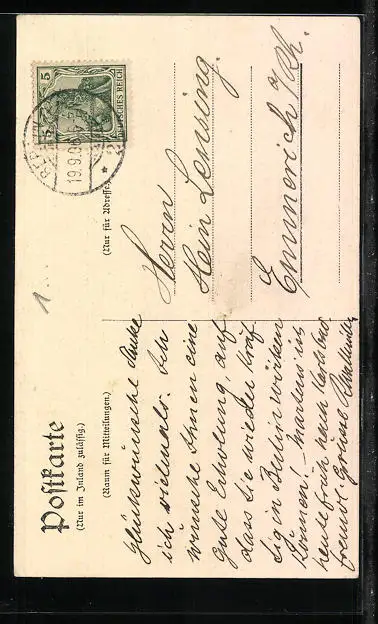 Postkarte
(Nur im Inland zulässig.)
(Raum für Mitteilungen.)
(Nur für Adresse.)
5 5
DEUTSCHES REICH
BERLIN
19.9.06
1
Glückwünsche danke
ich vielmals. Ich
wünsche Ihnen eine
gute Erholung, auf
dass Sie wieder kräf
tig in Berlin wirken
können! Martens ist
heute früh nach
freundl. Grüsse
Herrn
Hein Lensing.
Emmerich a/Rh.